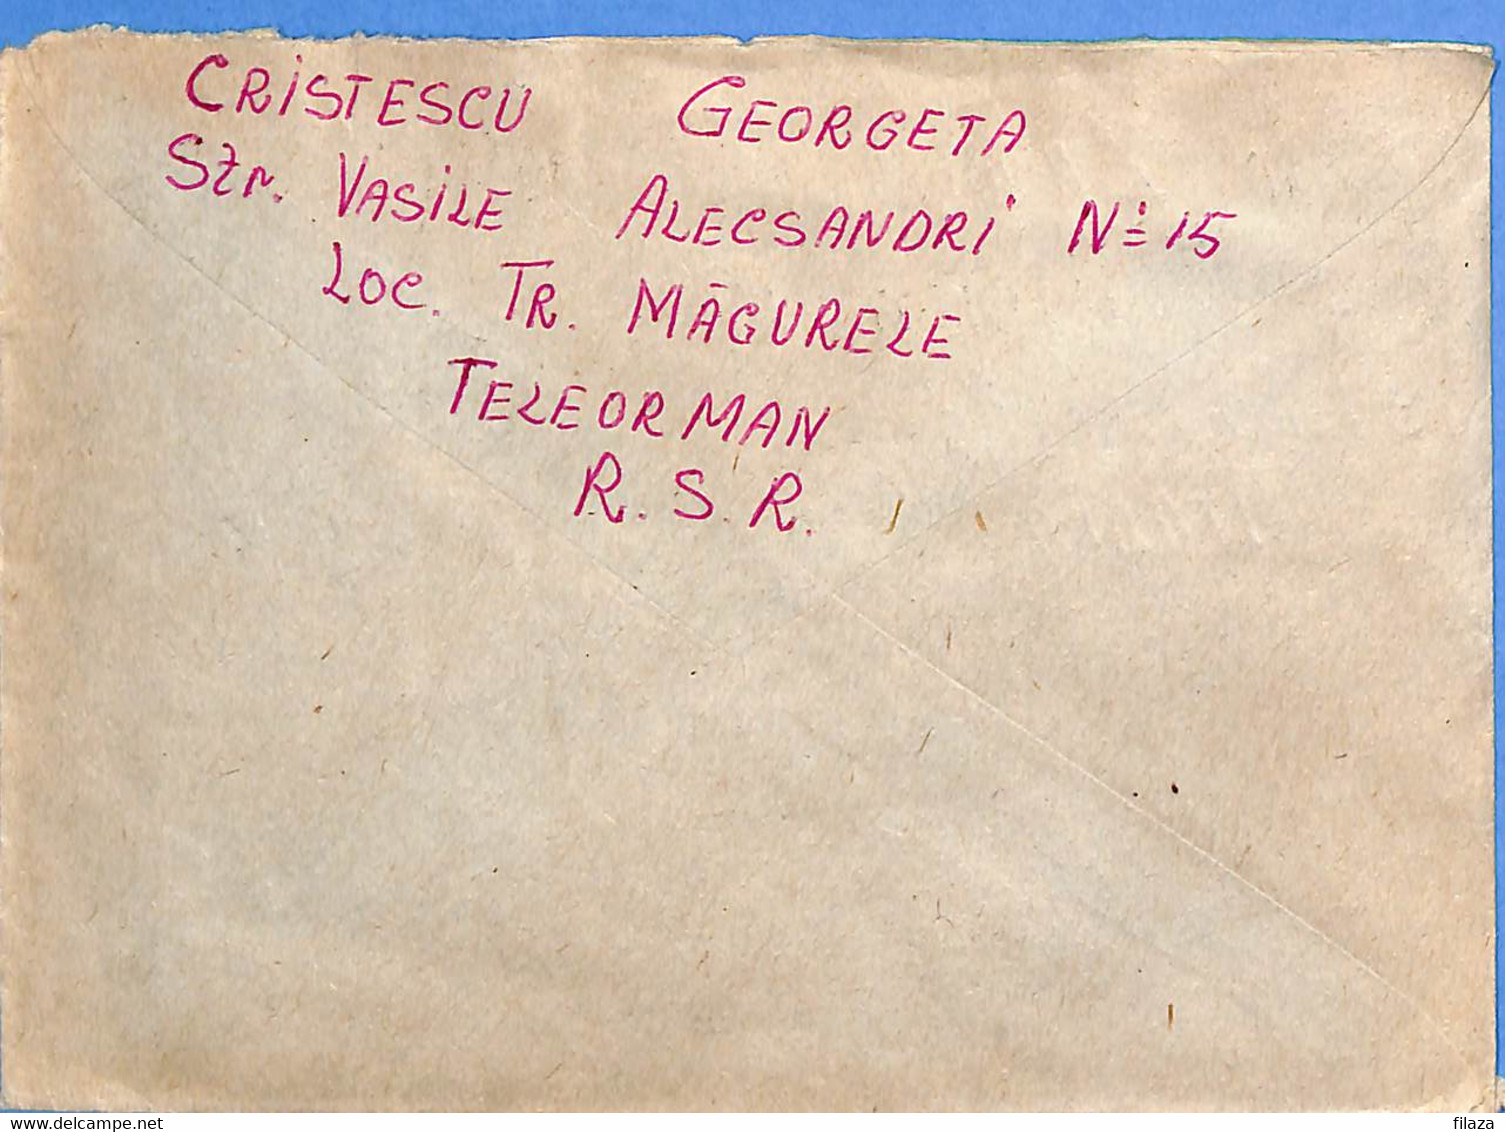 CRISTESCU GEORGETA
Str. VASILE ALECSANDRI Nº 15
Loc. TR. MĂGURELE
TELEORMAN
R.S.R.
www.delcampe.net
filaza